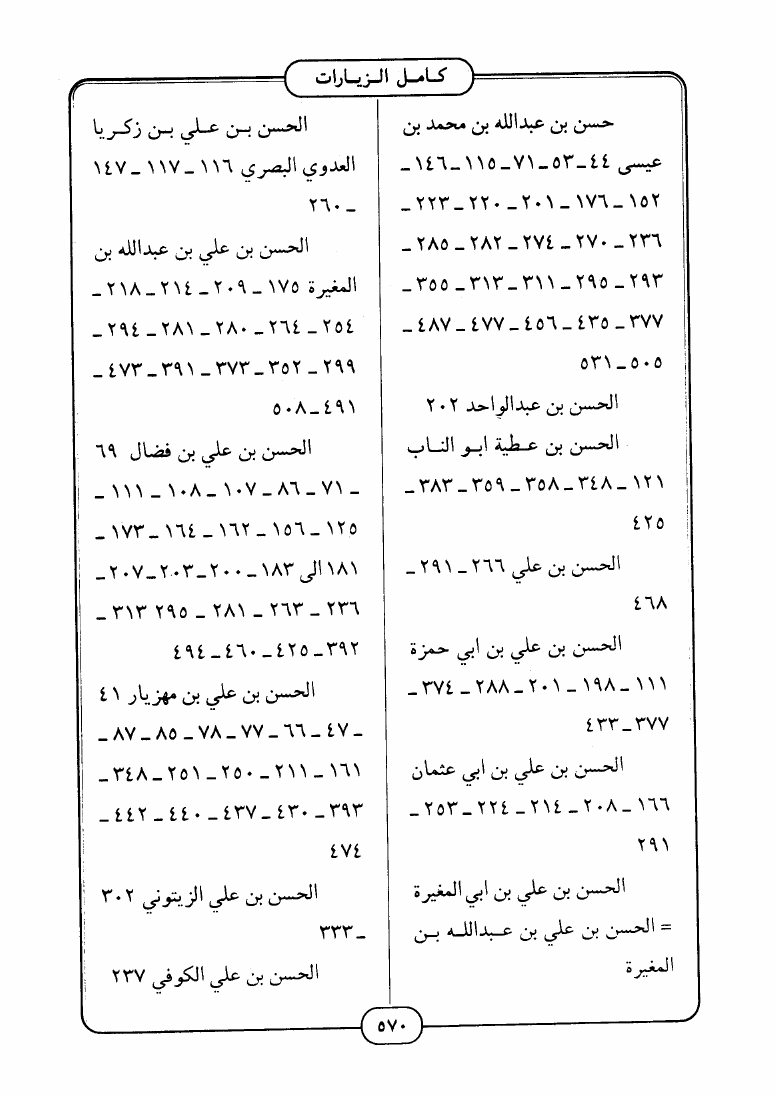 كامل الزيارات
حسن بن عبدالله بن محمد بن
عيسى ٤٤ـ٥٣ـ٧١ـ١١٥ـ١٤٦ـ
١٥٢ـ١٧٦ـ٢٠١ـ٢٢٠ـ٢٢٣ـ
٢٣٦ـ٢٧٠ـ٢٧٤ـ٢٨٢ـ٢٨٥ـ
٢٩٣ـ٢٩٥ـ٣١١ـ٣١٣ـ٣٥٥ـ
٣٧٧ـ٤٣٥ـ٤٥٦ـ٤٧٧ـ٤٨٧ـ
٥٠٥ـ٥٣١
الحسن بن عبدالواحد ٢٠٢
الحسن بن عطية ابو الناب
١٢١ـ٣٤٨ـ٣٥٨ـ٣٥٩ـ٣٨٣ـ
٤٢٥
الحسن بن علي ٢٦٦ـ٢٩١ـ
٤٦٨
الحسن بن علي بن ابي حمزة
١١١ـ١٩٨ـ٢٠١ـ٢٨٨ـ٣٧٤ـ
٣٧٧ـ٤٣٣
الحسن بن علي بن ابي عثمان
١٦٦ـ٢٠٨ـ٢١٤ـ٢٢٤ـ٢٥٣ـ
٢٩١
الحسن بن علي بن ابي المغيرة
= الحسن بن علي بن عبدالله بن
المغيرة
الحسن بن علي بن زكريا
العدوي البصري ١١٦ـ١١٧ـ١٤٧
ـ٢٦٠
الحسن بن علي بن عبدالله بن
المغيرة ١٧٥ـ٢٠٩ـ٢١٤ـ٢١٨ـ
٢٥٤ـ٢٦٤ـ٢٨٠ـ٢٨١ـ٢٩٤ـ
٢٩٩ـ٣٥٢ـ٣٧٣ـ٣٩١ـ٤٧٣ـ
٤٩١ـ٥٠٨
الحسن بن علي بن فضال ٦٩
ـ٧١ـ٨٦ـ١٠٧ـ١٠٨ـ١١١ـ
١٢٥ـ١٥٦ـ١٦٢ـ١٦٤ـ١٧٣ـ
١٨١ الى ١٨٣ـ٢٠٠ـ٢٠٣ـ٢٠٧ـ
٢٣٦ـ٢٦٣ـ٢٨١ـ٢٩٥ ٣١٣ـ
٣٩٢ـ٤٢٥ـ٤٦٠ـ٤٩٤
الحسن بن علي بن مهزيار ٤١
ـ٤٧ـ٦٦ـ٧٧ـ٧٨ـ٨٥ـ٨٧ـ
١٦١ـ٢١١ـ٢٥٠ـ٢٥١ـ٣٤٨ـ
٣٩٣ـ٤٣٠ـ٤٣٧ـ٤٤٠ـ٤٤٢ـ
٤٧٤
الحسن بن علي الزيتوني ٣٠٢
ـ٣٣٣
الحسن بن علي الكوفي ٢٣٧
٥٧٠